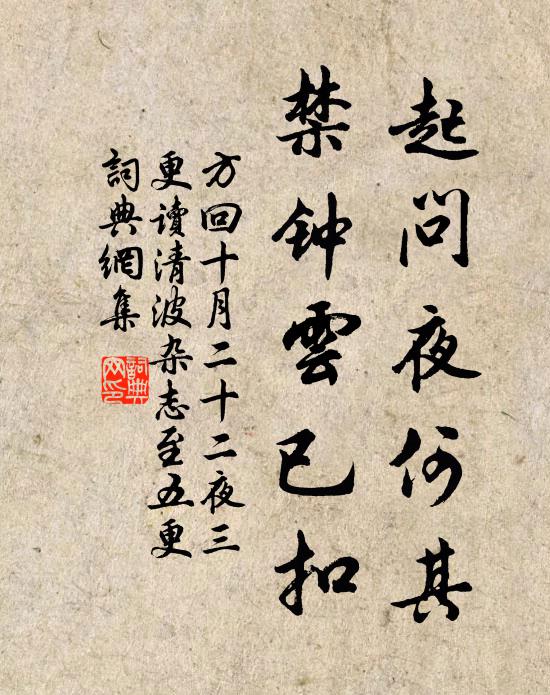 起問夜何其
禁钟雲已扣
方回十月二十二夜三
更讀清波杂志至五更
詞典網集
詞典
网印